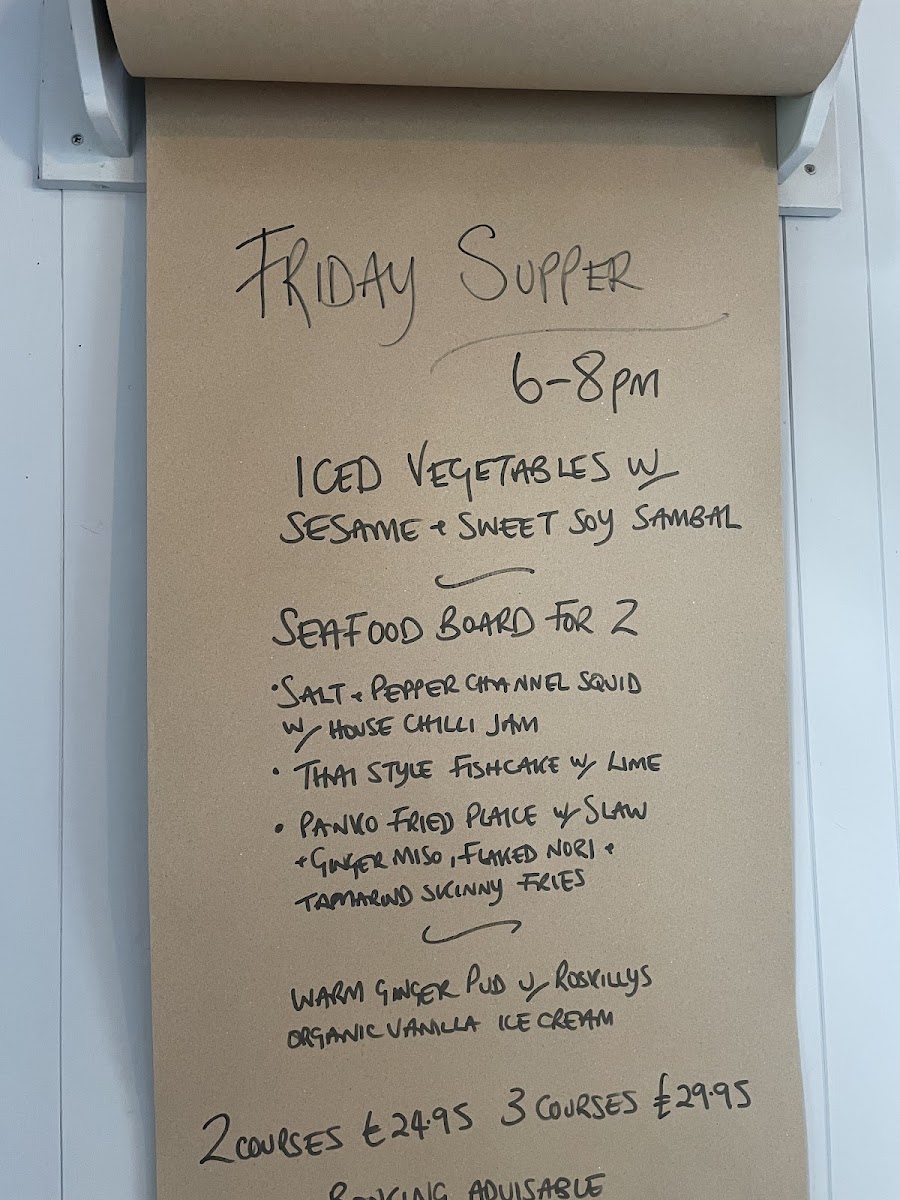 FRIDAY SUPPER
6-8PM
ICED VEGETABLES W/
SESAME + SWEET SOY SAMBAL
SEAFOOD BOARD FOR 2
• SALT + PEPPER CHANNEL SQUID
W/ HOUSE CHILLI JAM
• THAI STYLE FISHCAKE W/ LIME
• PANKO FRIED PLAICE W/ SLAW
+ GINGER MISO, FLAKED NORI +
TAMARIND SKINNY FRIES
WARM GINGER PUD W/ ROSKILLYS
ORGANIC VANILLA ICE CREAM
2 COURSES £24.95 3 COURSES £29.95
BOOKING ADVISABLE